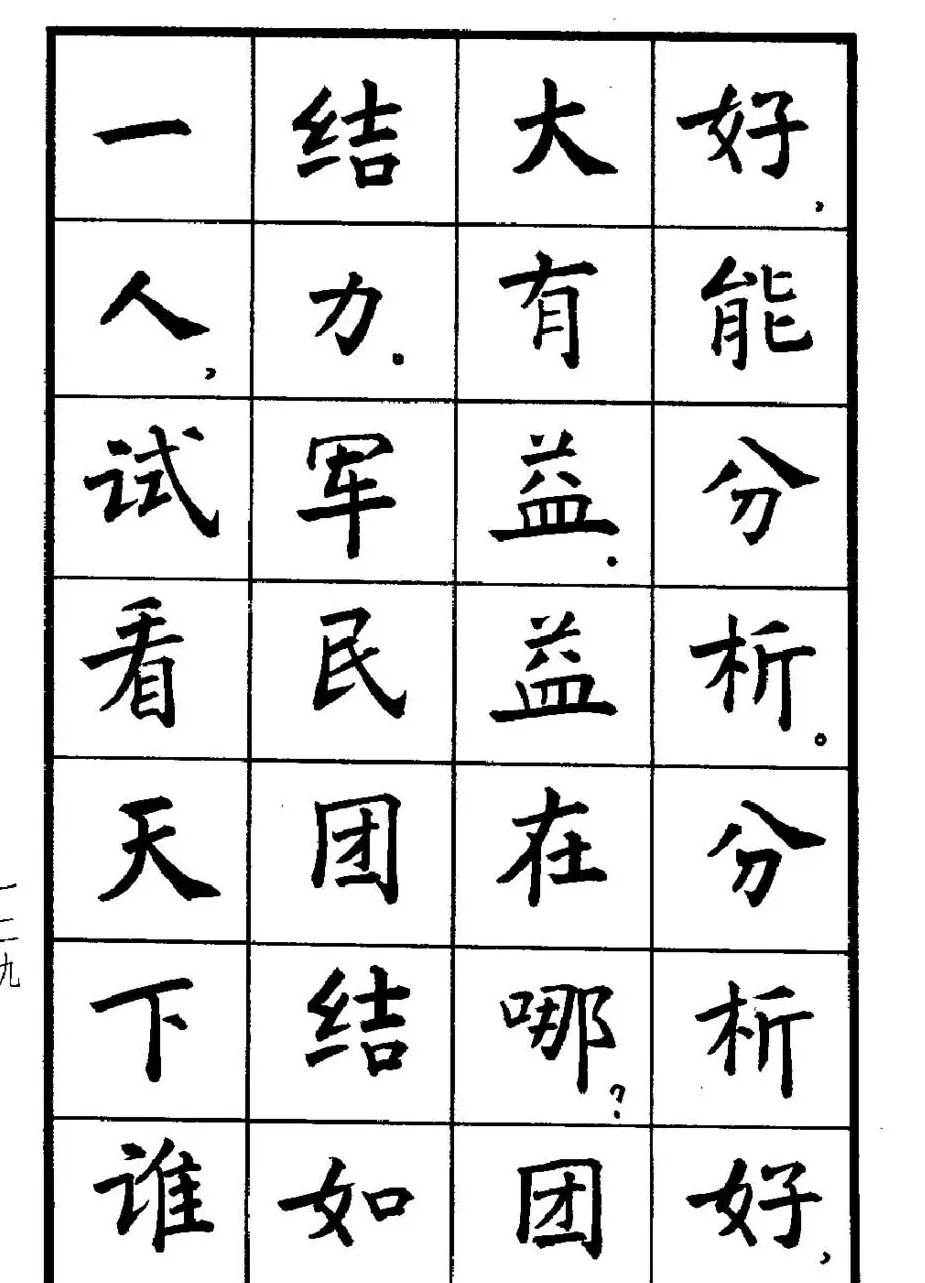 好，能分析。分析好，
大有益。益在哪？团
结力。军民团结如
一人，试看天下谁
一二九